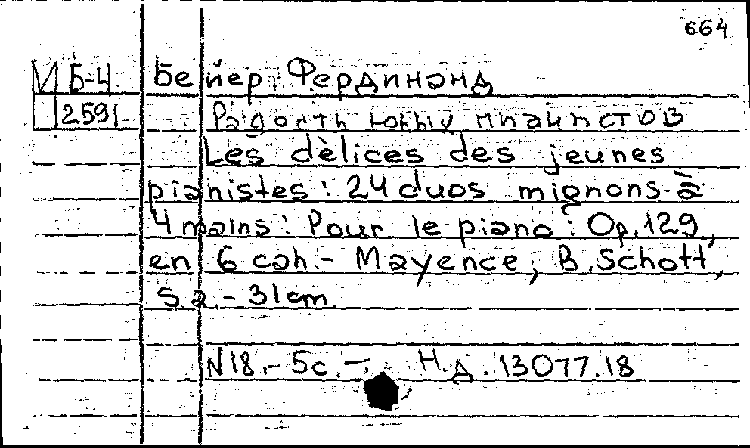 664
И Б-4 Бейер Фердинанд
2591 Радость юных пианистов
Les dèlices des jeunes
pianistes: 24 duos mignons à
4 mains: Pour le piano: Op. 129,
en 6 cah. - Mayence, B. Schott,
s.a. - 31cm
N18. - 5c. -. Н.д. 13077.18